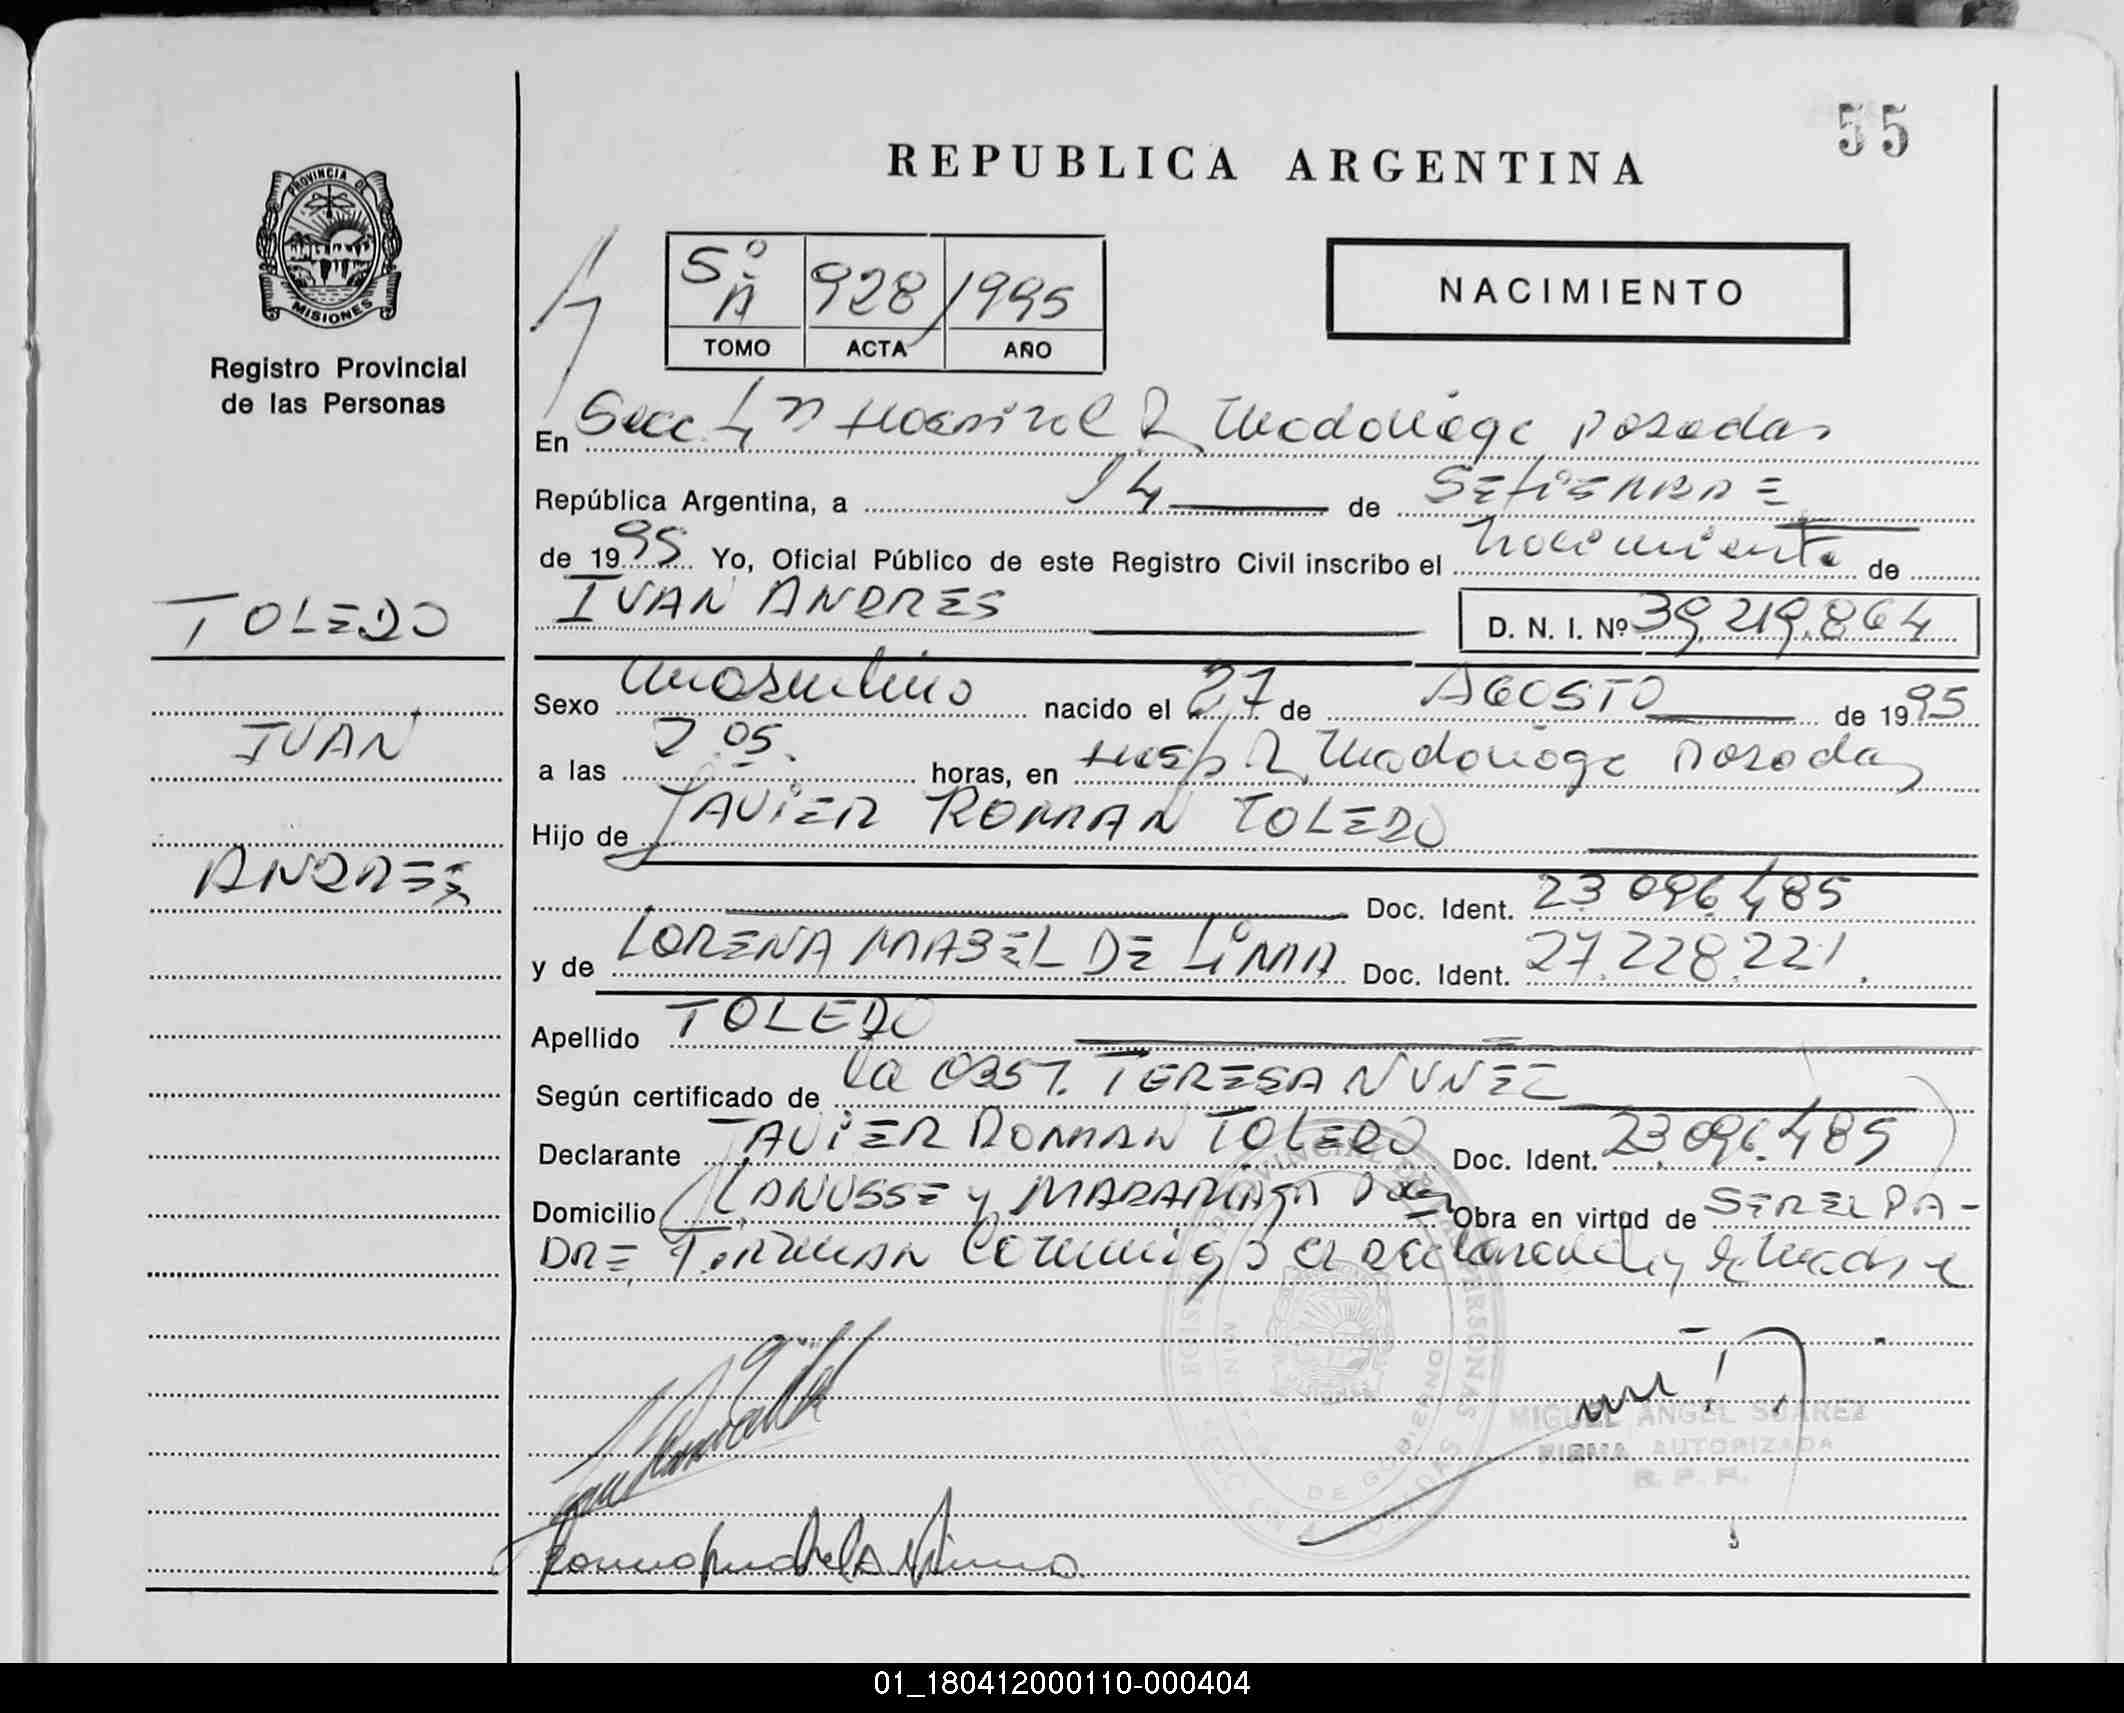 55
REPUBLICA ARGENTINA
PROVINCIA DE
MISIONES
Registro Provincial
de las Personas
5º A 928/1995
TOMO ACTA AÑO
NACIMIENTO
En Secc. 4ª Hospital R. Madariaga Posadas
República Argentina, a 14 de SETIEMBRE
de 1995 Yo, Oficial Público de este Registro Civil inscribo el nacimiento de
IVAN ANDRES D. N. I. Nº 39.219.864
TOLEDO
IVAN
ANDRES
Sexo masculino nacido el 27 de AGOSTO de 1995
a las 2 05. horas, en Hosp R. Madariaga Posadas
Hijo de JAVIER ROMAN TOLEDO
Doc. Ident. 23 096.485
y de LORENA MABEL DE LIMA Doc. Ident. 27.228.221.
Apellido TOLEDO
Según certificado de la OBST. TERESA NUÑEZ
Declarante JAVIER ROMAN TOLEDO Doc. Ident. 23.096.485
Domicilio LANUSSE y Obra en virtud de SER EL PA-
DRE FIRMAN conmigo el declarante y la madre
MIGUEL ANGEL SUAREZ
FIRMA AUTORIZADA
R. P. P.
01_180412000110-000404